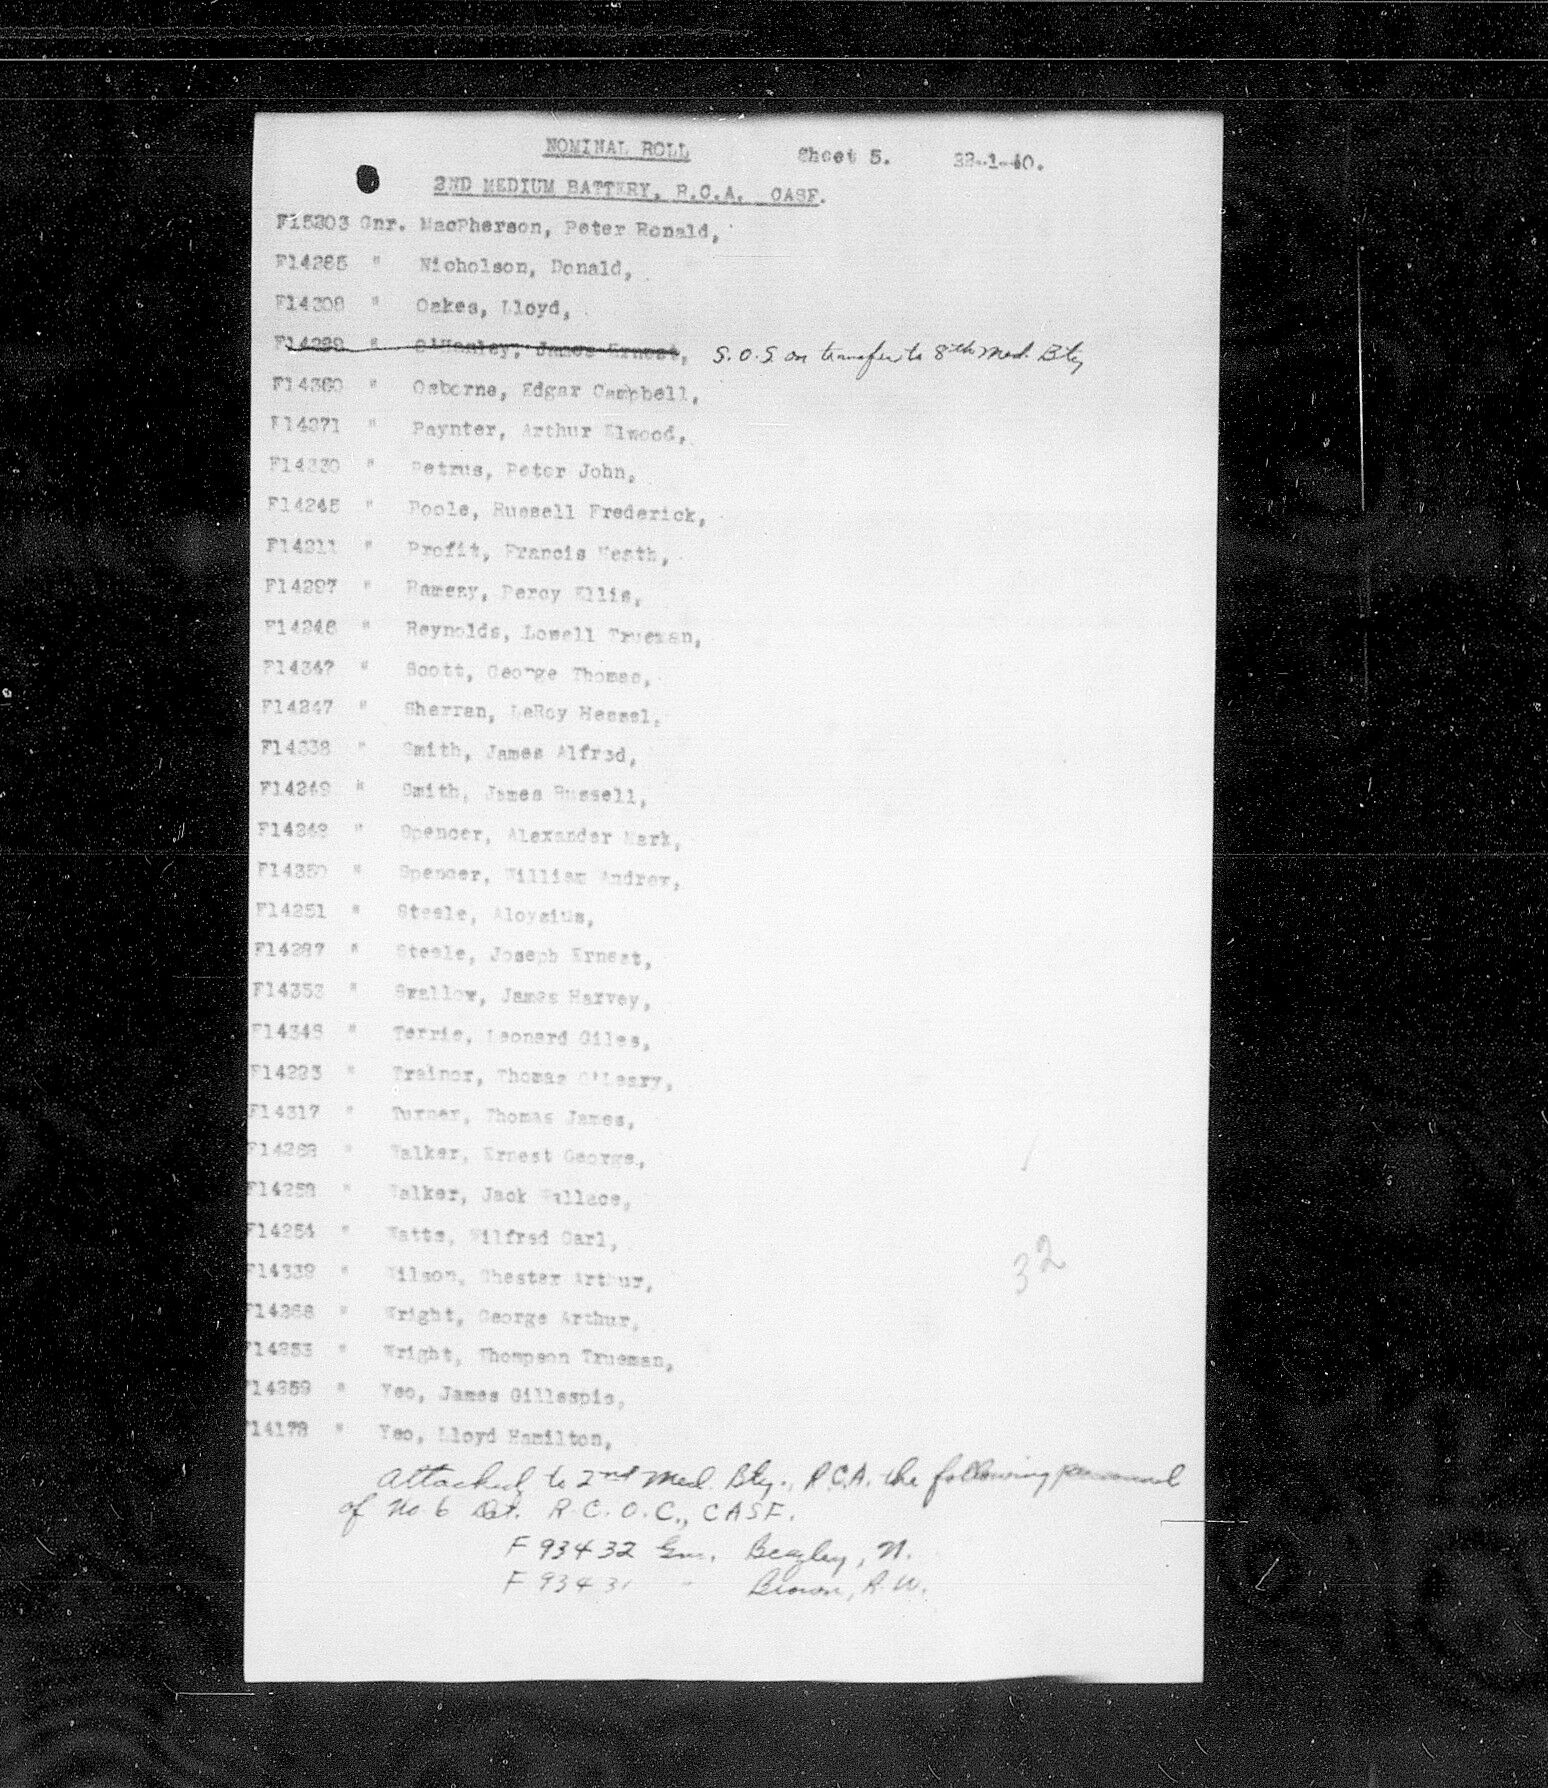 NOMINAL ROLL Sheet 5. 22-1-40.
2ND MEDIUM BATTERY, R.C.A. CASF.
F15203 Gnr. MacPherson, Peter Ronald,
F14285 " Nicholson, Donald,
F14308 " Oakes, Lloyd,
" O'Hanley, James Ernest, S.O.S on transfer to 8th Med. Bty
F14360 " Osborne, Edgar Campbell,
F14371 " Paynter, Arthur Elwood,
F14330 " Petrus, Peter John,
F14245 " Poole, Russell Frederick,
F14211 " Profit, Francis Heath,
F14297 " Ramsay, Percy Ellis,
F14246 " Reynolds, Lowell Trueman,
F14347 " Scott, George Thomas,
F14247 " Sherren, LeRoy Hessel,
F14338 " Smith, James Alfred,
F14249 " Smith, James Russell,
F14248 " Spencer, Alexander Mark,
F14350 " Spencer, William Andrew,
F14251 " Steele, Aloysius,
F14287 " Steele, Joseph Ernest,
F14352 " Swallow, James Harvey,
F14348 " Terris, Leonard Giles,
F14223 " Trainor, Thomas O'Leary,
F14317 " Turner, Thomas James,
" Walker, Ernest George,
" Walker, Jack Wallace,
F14254 " Watts, Wilfred Carl,
F14339 " Wilson, Chester Arthur,
" Wright, George Arthur,
" Wright, Thompson Trueman,
" Yeo, James Gillespie,
14178 " Yeo, Lloyd Hamilton,
32
Attached to 2nd Med. Bty., R.C.A. the following personnel
of No. 6 Det. R.C.O.C., CASF.
F 93432 Gnr. Beazley, N.
F 93431 " Brown, R.W.